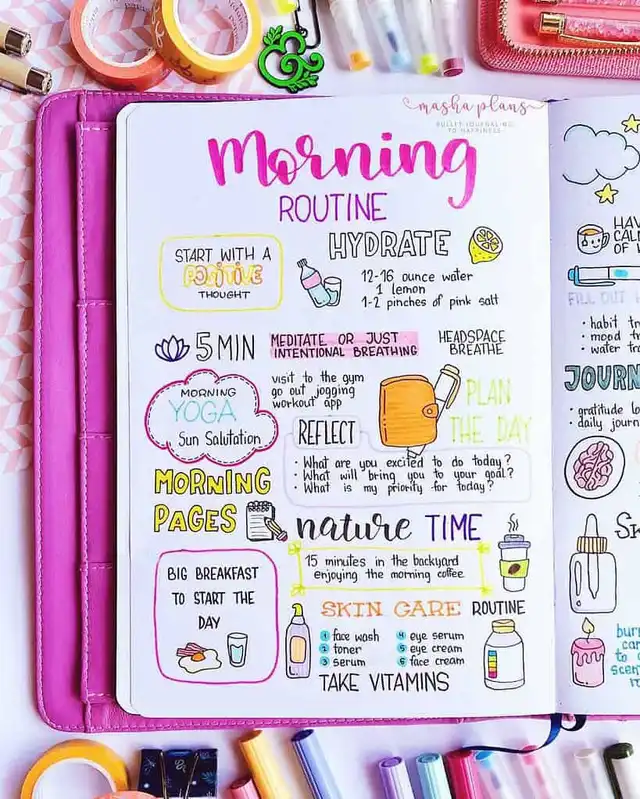 masha plans
BULLET JOURNALING
TO HAPPINESS
Morning
ROUTINE
START WITH A
POSITIVE
THOUGHT
HYDRATE
12-16 ounce water
1 lemon
1-2 pinches of pink salt
5 MIN
MEDITATE OR JUST
INTENTIONAL BREATHING
HEADSPACE
BREATHE
MORNING
YOGA
Sun Salutation
visit to the gym
go out jogging
workout app
PLAN
THE DAY
REFLECT
• What are you excited to do today?
• What will bring you to your goal?
• What is my priority for today?
MORNING
PAGES
nature TIME
15 minutes in the backyard
enjoying the morning coffee
BIG BREAKFAST
TO START THE
DAY
SKIN CARE ROUTINE
1 face wash
2 toner
3 serum
4 eye serum
5 eye cream
6 face cream
TAKE VITAMINS
HAV
CAL
OF
FILL OUT
• habit tr
• mood tr
• water tra
JOURN
• gratitude lo
• daily journ
SK
bur
can
to
scen